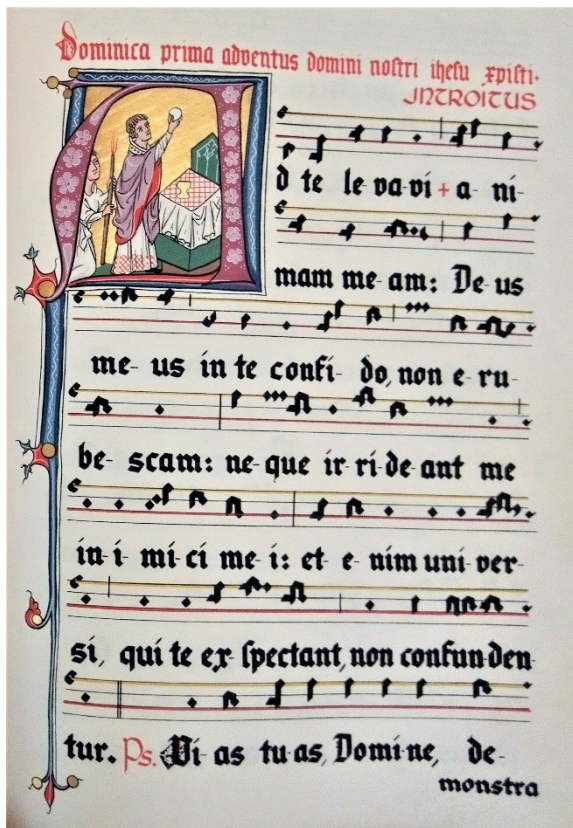 Dominica prima adventus domini nostri ihesu xpisti.
INTROITUS
Ad te le va-vi + a- ni-
mam me- am: De- us
me- us in te confi- do, non e- ru-
be- scam: ne- que ir- ri- de- ant me
in- i- mi- ci me- i: et e- nim uni ver-
si, qui te ex- spectant, non confun-den
tur. Ps. Vi- as tu-as, Domi-ne, de-
monstra